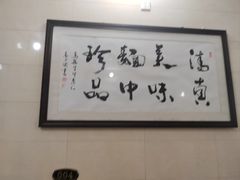 清真
美味
麵中
珍品
004